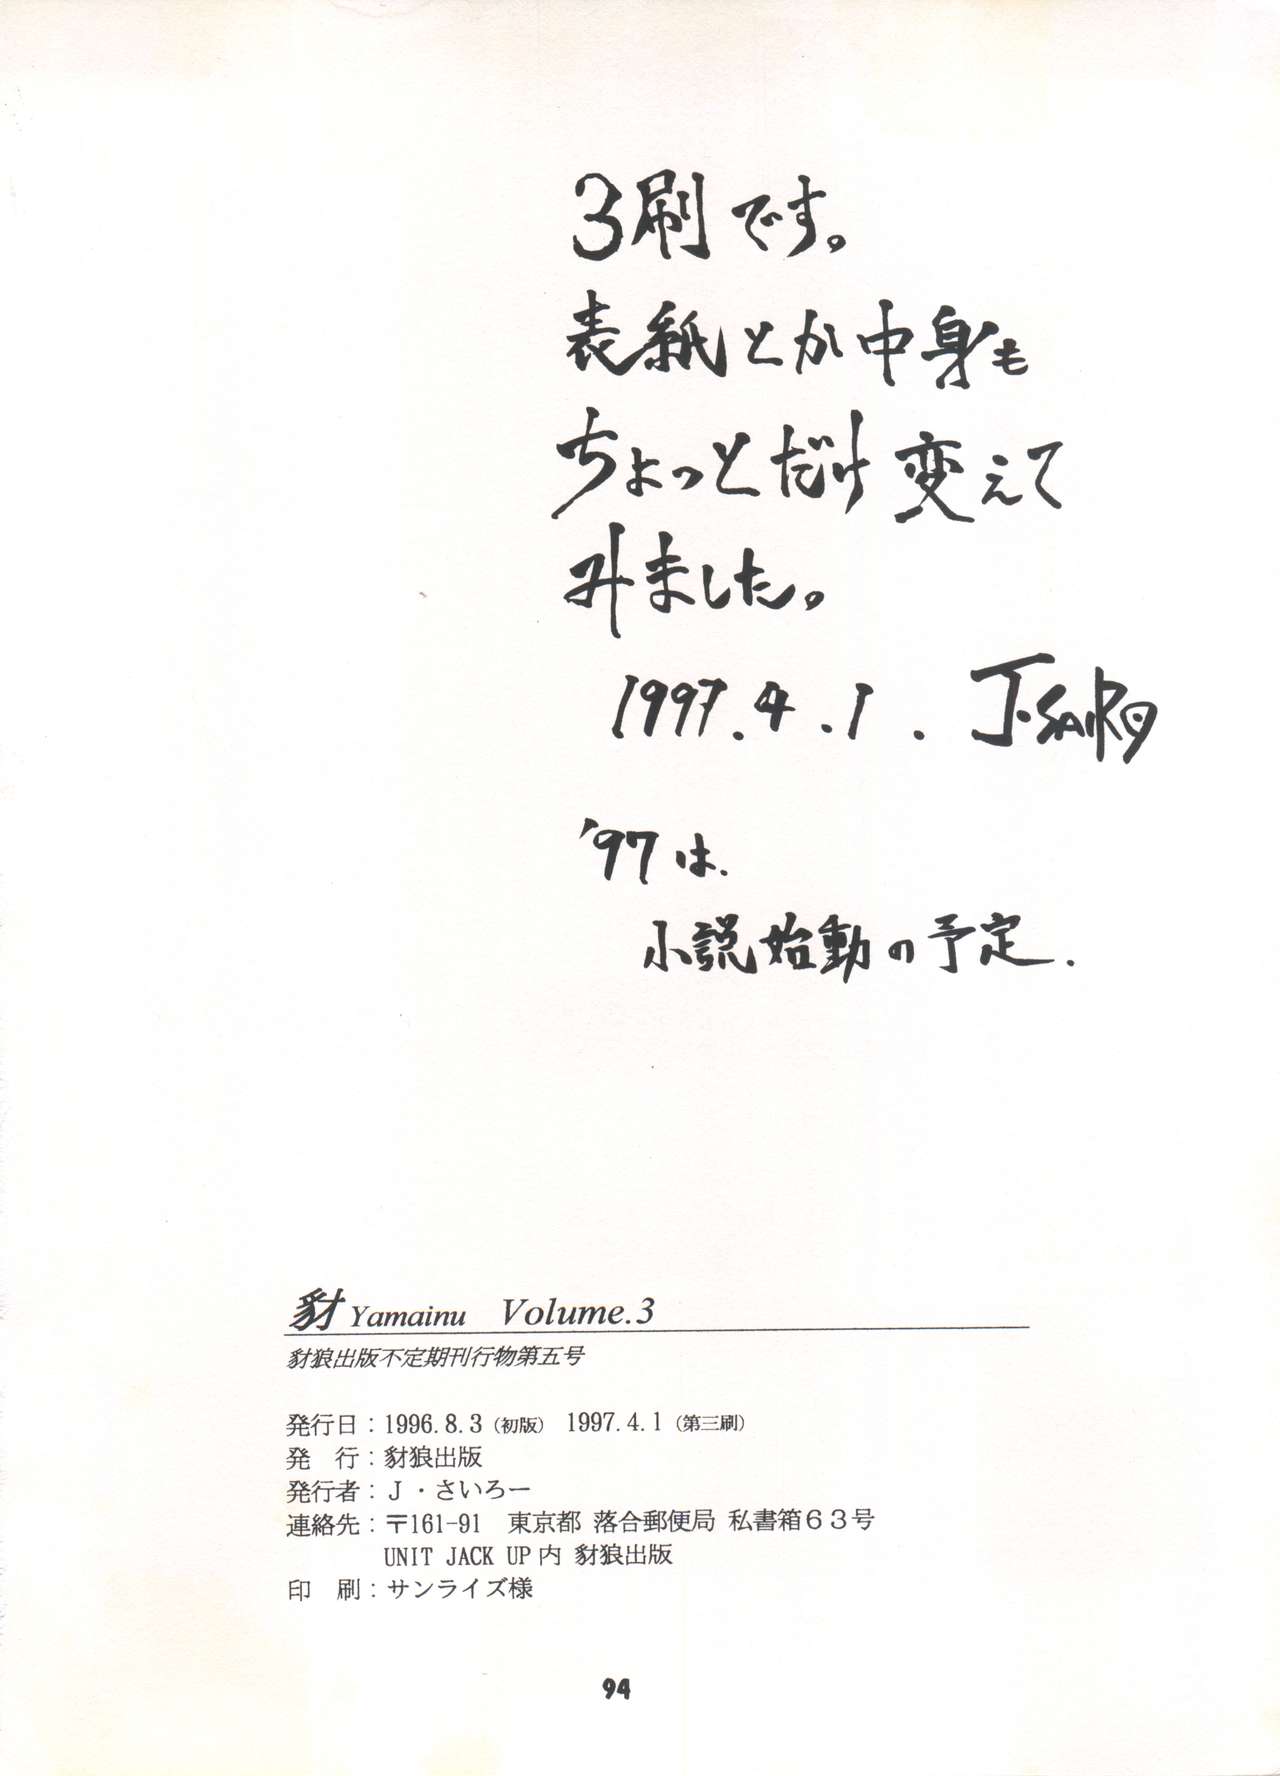 3刷です。
表紙とか中身も
ちょっとだけ変えて
みました。
1997.4.1. J・SAIRO
'97は、
小説始動の予定.
豺 Yamainu Volume.3
豺狼出版不定期刊行物第五号
発行日：1996.8.3（初版） 1997.4.1（第三刷）
発　行：豺狼出版
発行者：Ｊ・さいろー
連絡先：〒161-91　東京都 落合郵便局 私書箱６３号
UNIT JACK UP内 豺狼出版
印　刷：サンライズ様
94